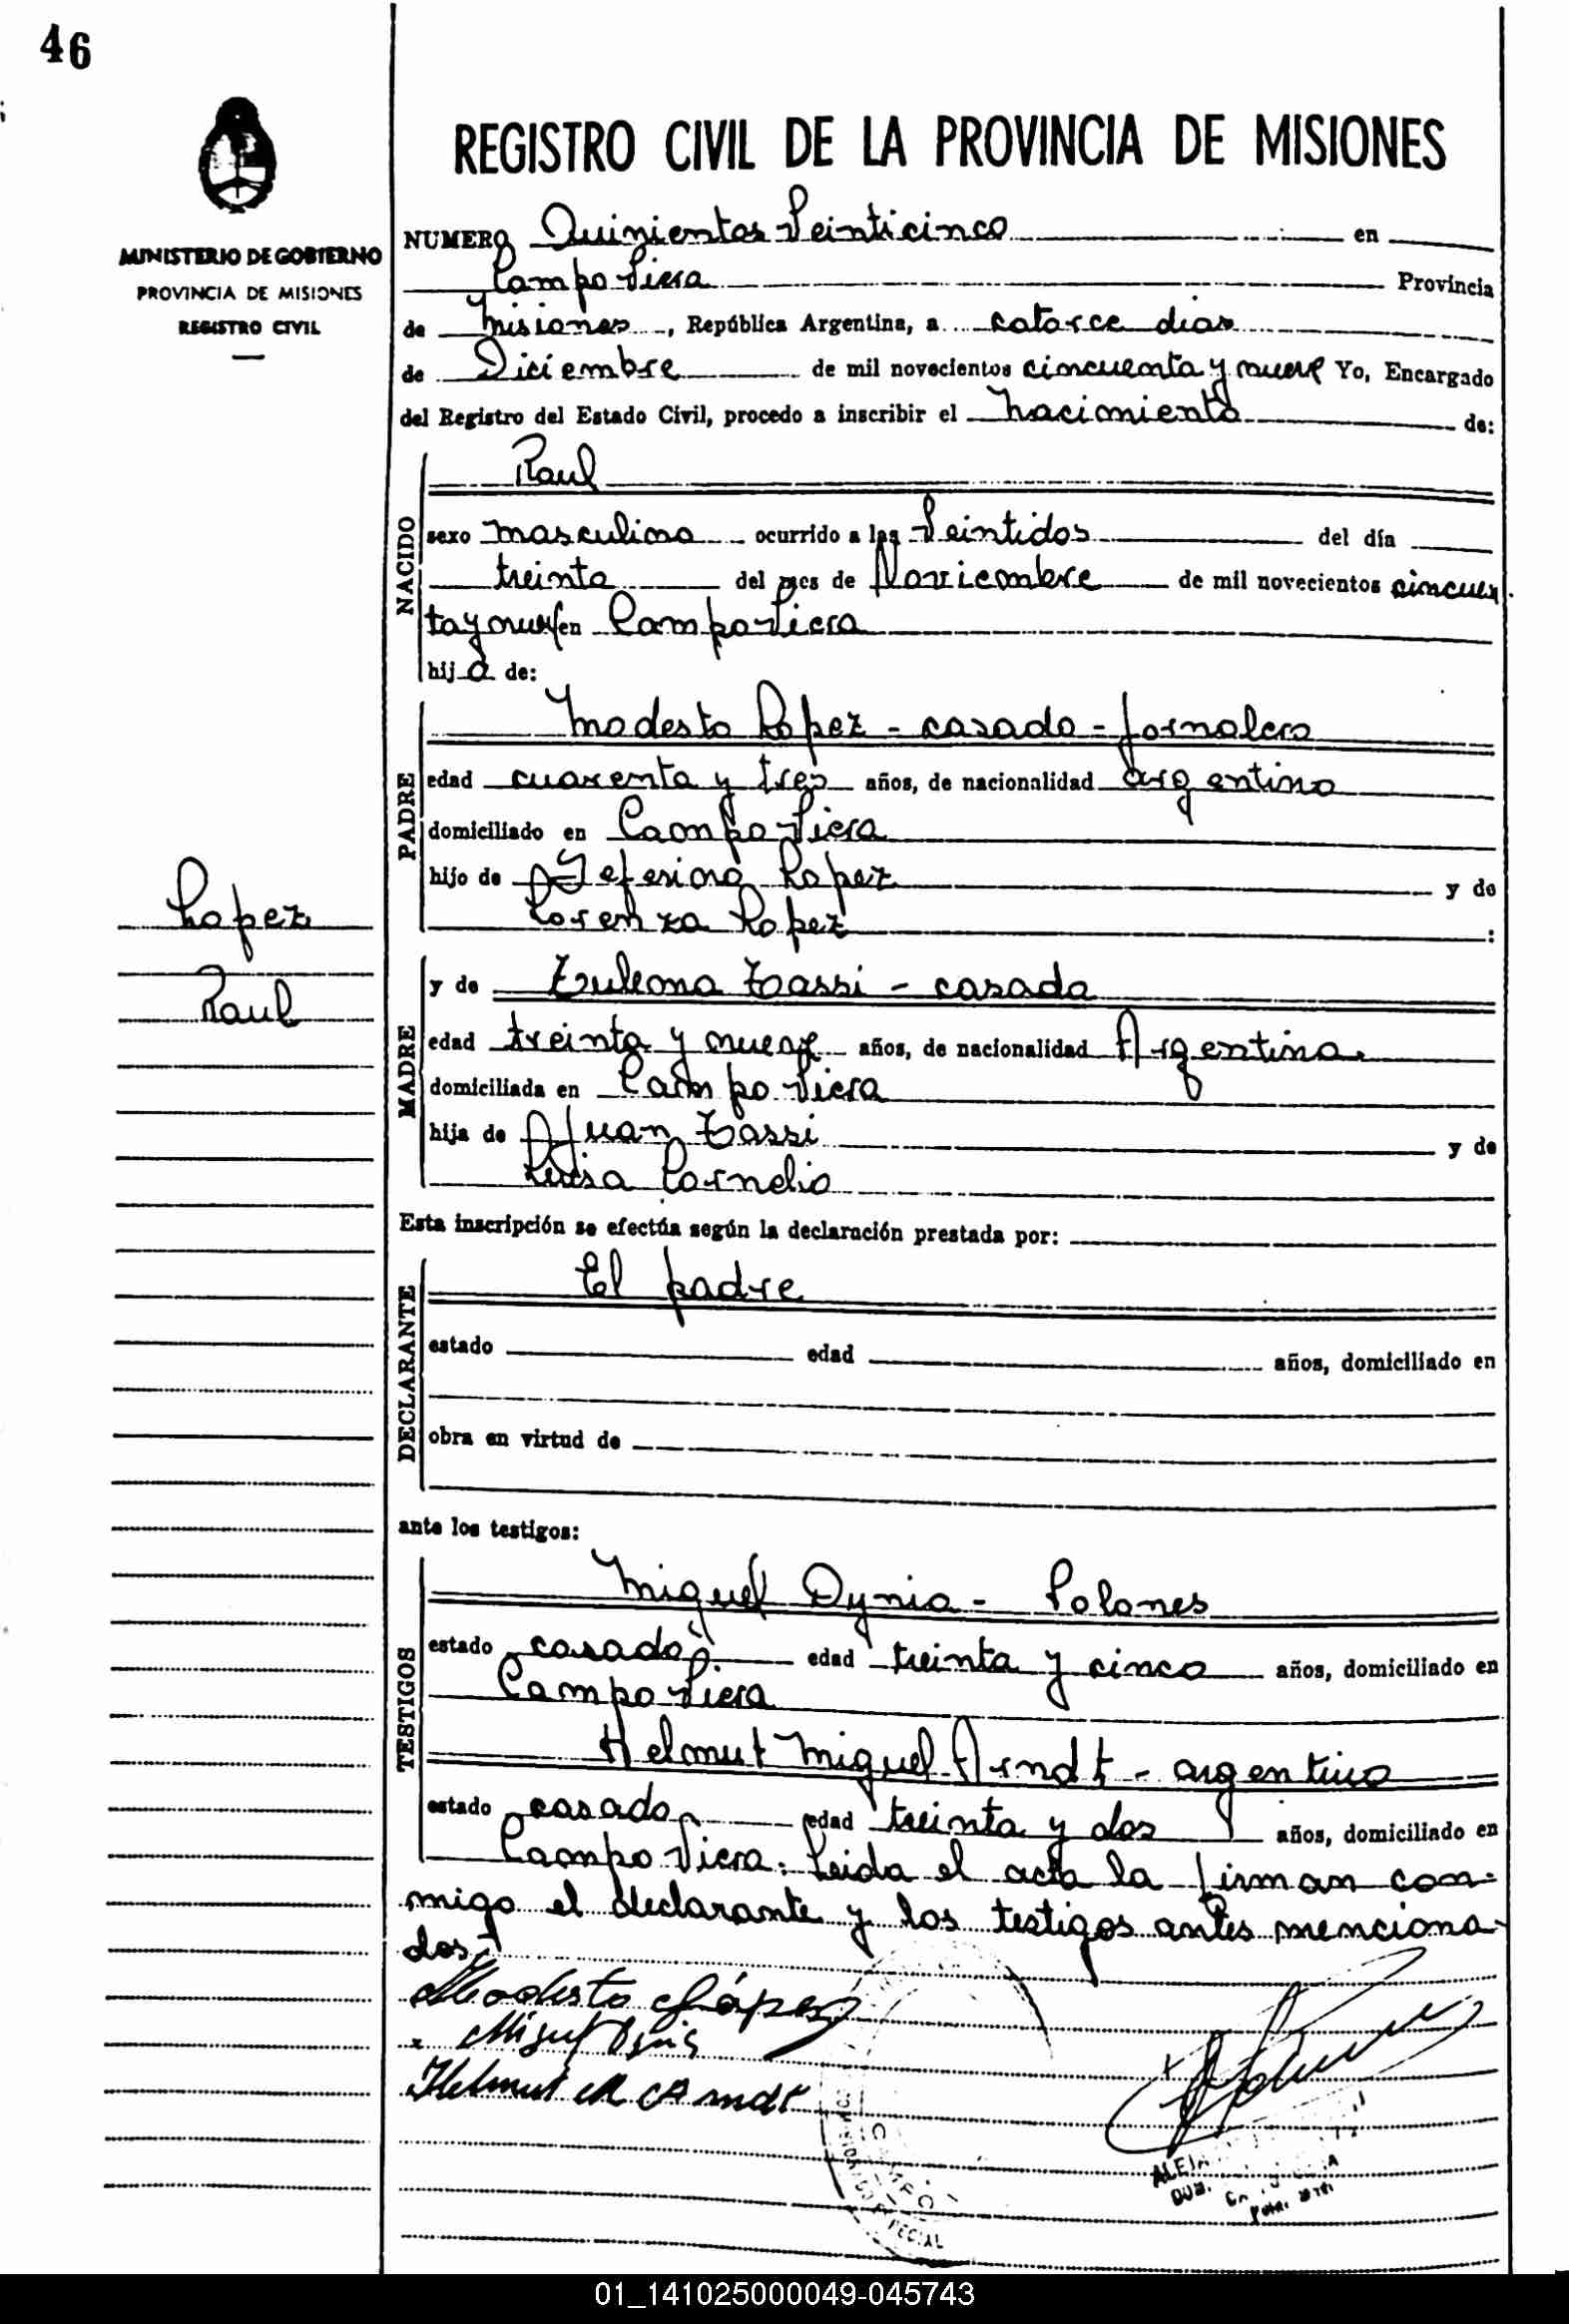 46
REGISTRO CIVIL DE LA PROVINCIA DE MISIONES
MINISTERIO DE GOBIERNO
PROVINCIA DE MISIONES
REGISTRO CIVIL
NUMERO Quinientos Veinticinco en
Campo Viera Provincia
de Misiones, República Argentina, a catorce dias
de Diciembre de mil novecientos cincuenta y nueve Yo, Encargado
del Registro del Estado Civil, procedo a inscribir el nacimiento de:
NACIDO
Raul
sexo masculino ocurrido a las Veintidos del día
treinta del mes de Noviembre de mil novecientos cincuen
ta y nueve en Campo Viera
hijo de:
PADRE
Modesto Lopez - casado - jornalero
edad cuarenta y tres años, de nacionalidad argentino
domiciliado en Campo Viera
hijo de Seferino Lopez y de
Lorenza Lopez :
Lopez
Raul
MADRE
y de Zulema Tassi - casada
edad treinta y nueve años, de nacionalidad Argentina
domiciliada en Campo Viera
hija de Juan Tassi y de
Luisa Cornelio
Esta inscripción se efectúa según la declaración prestada por:
DECLARANTE
El padre
estado edad años, domiciliado en
obra en virtud de
ante los testigos:
TESTIGOS
Miguel Dynia - Polones
estado casado edad treinta y cinco años, domiciliado en
Campo Viera
Helmut Miguel Arndt - argentino
estado casado edad treinta y dos años, domiciliado en
Campo Viera. Leida el acta la firman con-
migo el declarante y los testigos antes menciona-
dos
Modesto López
Miguel Dynia
Helmut M Arndt
01_141025000049-045743